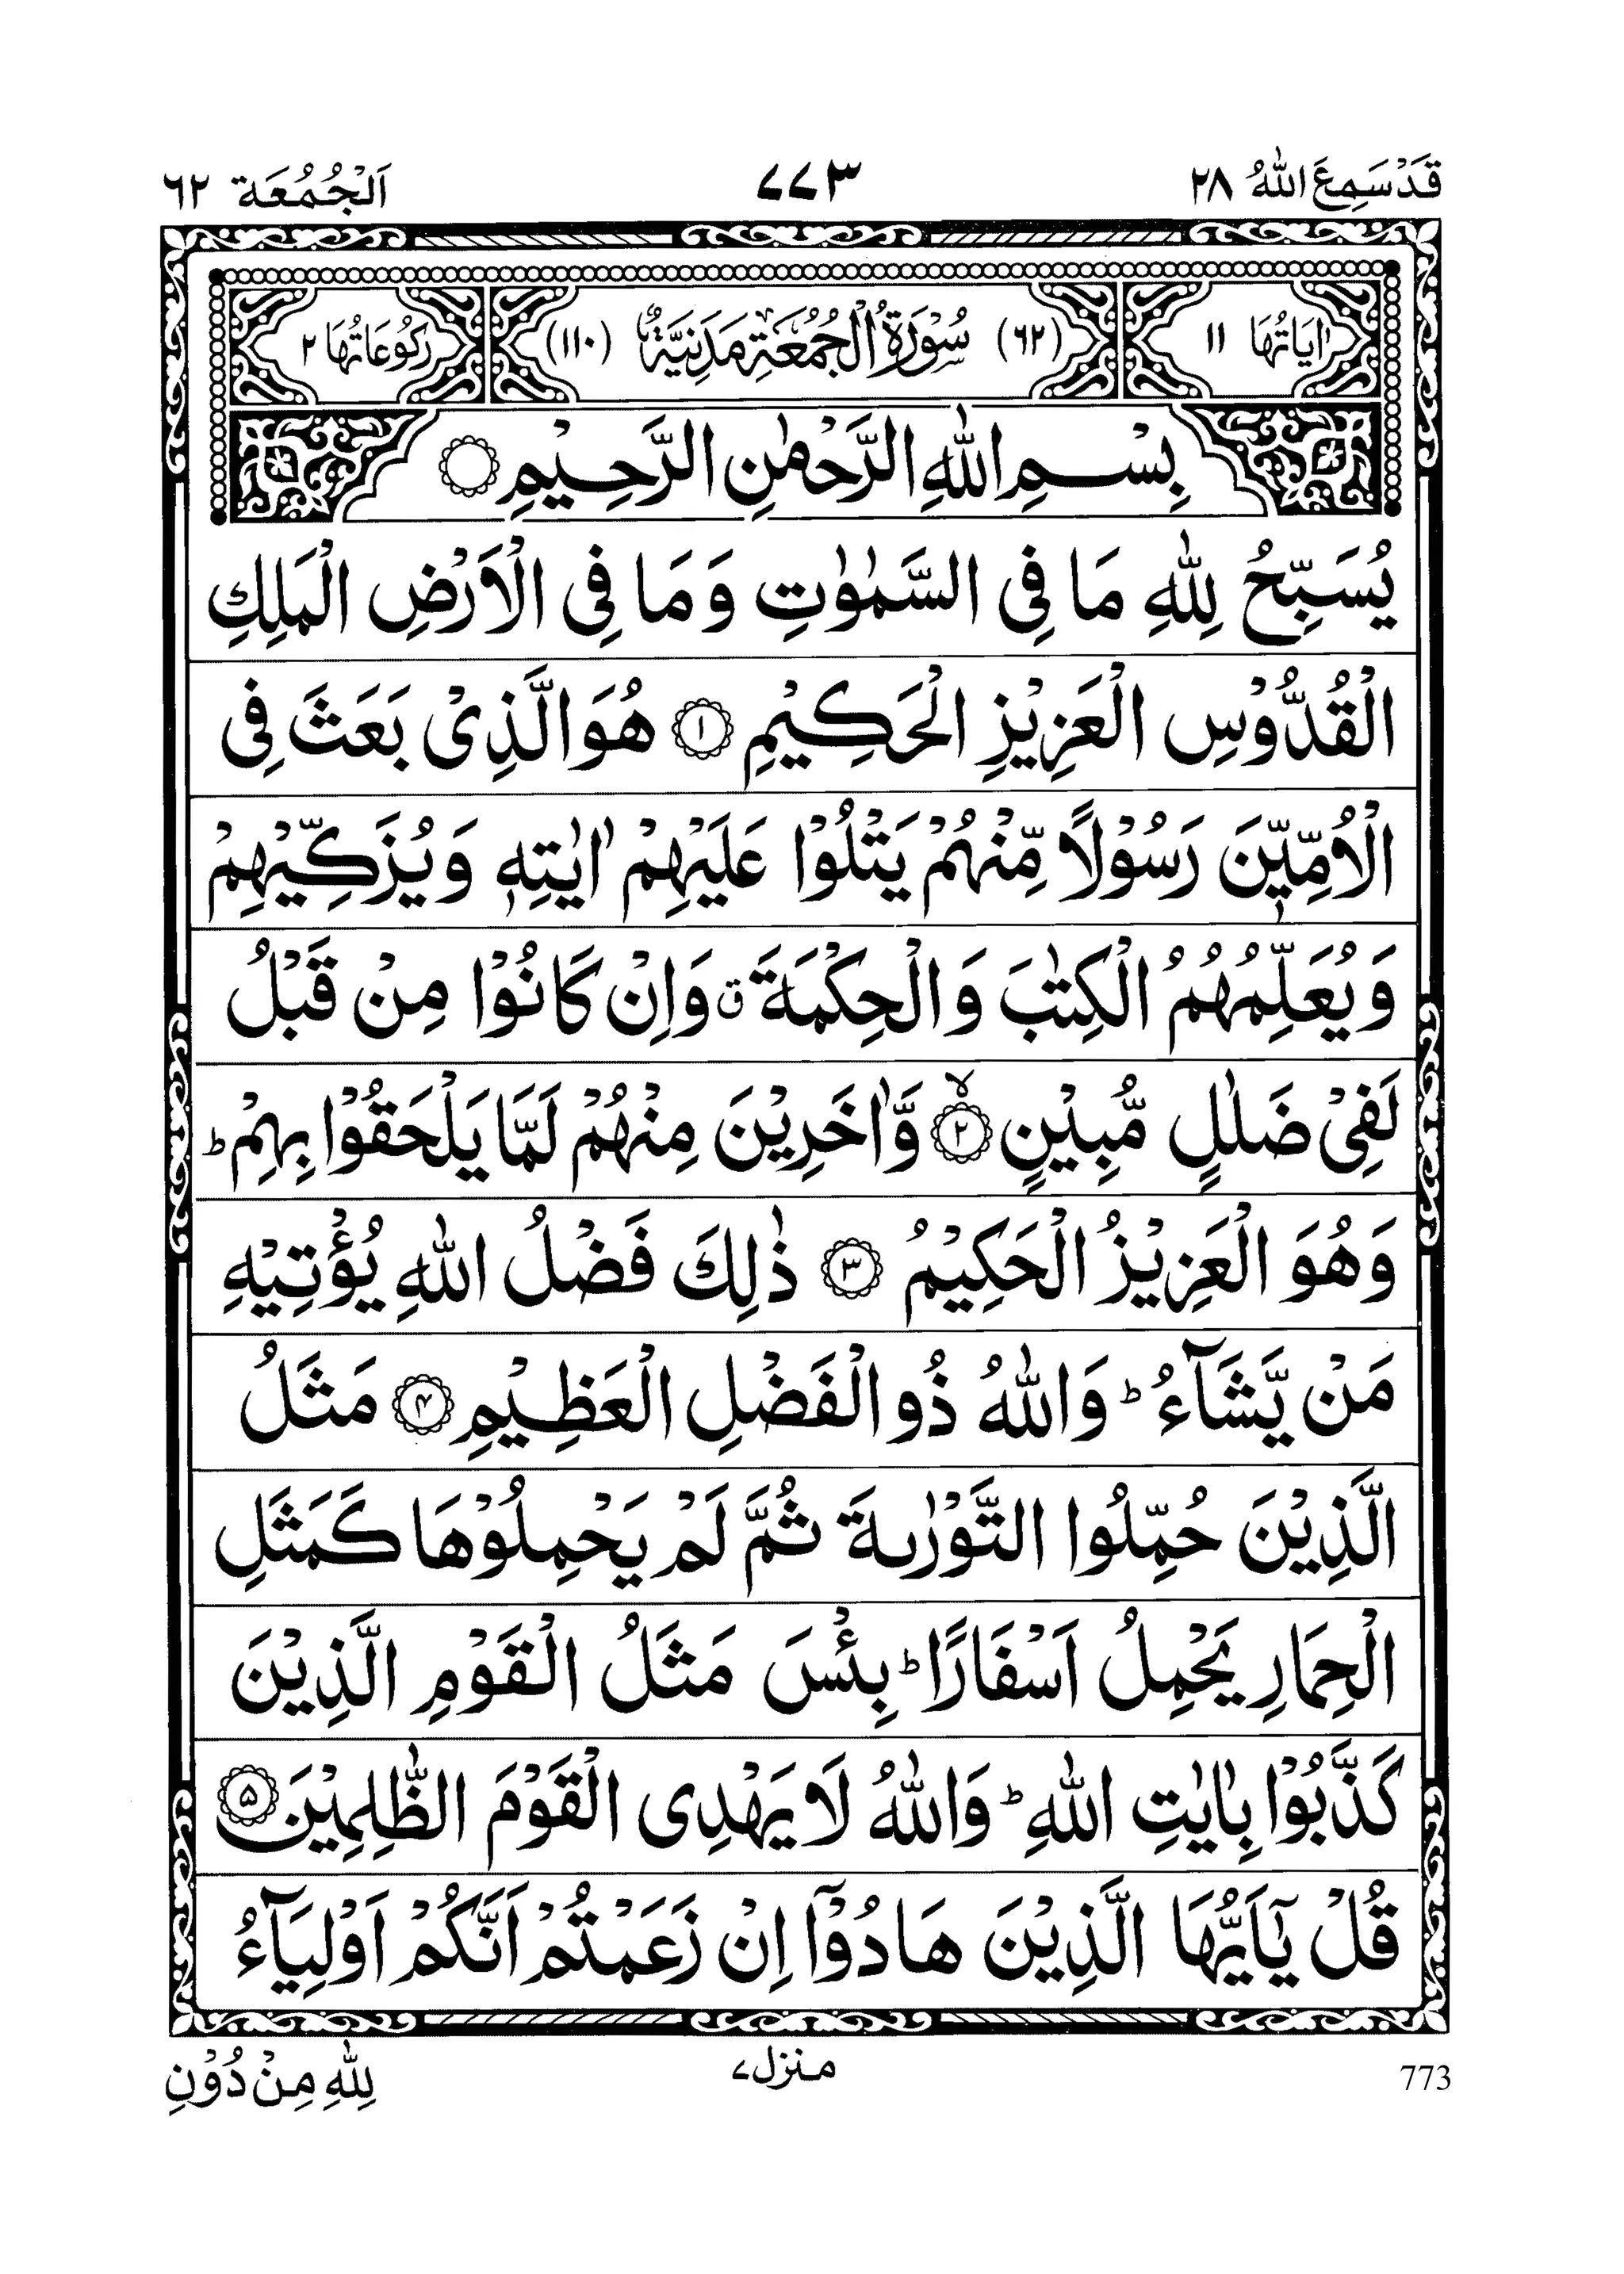 قَدْ سَمِعَ اللّٰهُ ٢٨
٧٧٣
اَلْجُمُعَة ٦٢
اٰيَاتُهَا ١١
(٦٢) سُوْرَةُ الْجُمُعَةِ مَدَنِيَّةٌ (١١٠)
رُكُوْعَاتُهَا ٢
بِسْمِ اللّٰهِ الرَّحْمٰنِ الرَّحِيْمِ ۝
يُسَبِّحُ لِلّٰهِ مَا فِى السَّمٰوٰتِ وَمَا فِى الْاَرْضِ الْمَلِكِ
الْقُدُّوْسِ الْعَزِيْزِ الْحَكِيْمِ ۝١ هُوَ الَّذِىْ بَعَثَ فِى
الْاُمِّيّٖنَ رَسُوْلًا مِّنْهُمْ يَتْلُوْا عَلَيْهِمْ اٰيٰتِهٖ وَيُزَكِّيْهِمْ
وَيُعَلِّمُهُمُ الْكِتٰبَ وَالْحِكْمَةَ ق وَاِنْ كَانُوْا مِنْ قَبْلُ
لَفِىْ ضَلٰلٍ مُّبِيْنٍ ۝٢ۙ وَّاٰخَرِيْنَ مِنْهُمْ لَمَّا يَلْحَقُوْا بِهِمْ ؕ
وَهُوَ الْعَزِيْزُ الْحَكِيْمُ ۝٣ ذٰلِكَ فَضْلُ اللّٰهِ يُؤْتِيْهِ
مَنْ يَّشَآءُ ؕ وَاللّٰهُ ذُو الْفَضْلِ الْعَظِيْمِ ۝٤ مَثَلُ
الَّذِيْنَ حُمِّلُوا التَّوْرٰىةَ ثُمَّ لَمْ يَحْمِلُوْهَا كَمَثَلِ
الْحِمَارِ يَحْمِلُ اَسْفَارًا ؕ بِئْسَ مَثَلُ الْقَوْمِ الَّذِيْنَ
كَذَّبُوْا بِاٰيٰتِ اللّٰهِ ؕ وَاللّٰهُ لَا يَهْدِى الْقَوْمَ الظّٰلِمِيْنَ ۝٥
قُلْ يٰۤاَيُّهَا الَّذِيْنَ هَادُوْۤا اِنْ زَعَمْتُمْ اَنَّكُمْ اَوْلِيَآءُ
773
منزل ٧
لِلّٰهِ مِنْ دُوْنِ